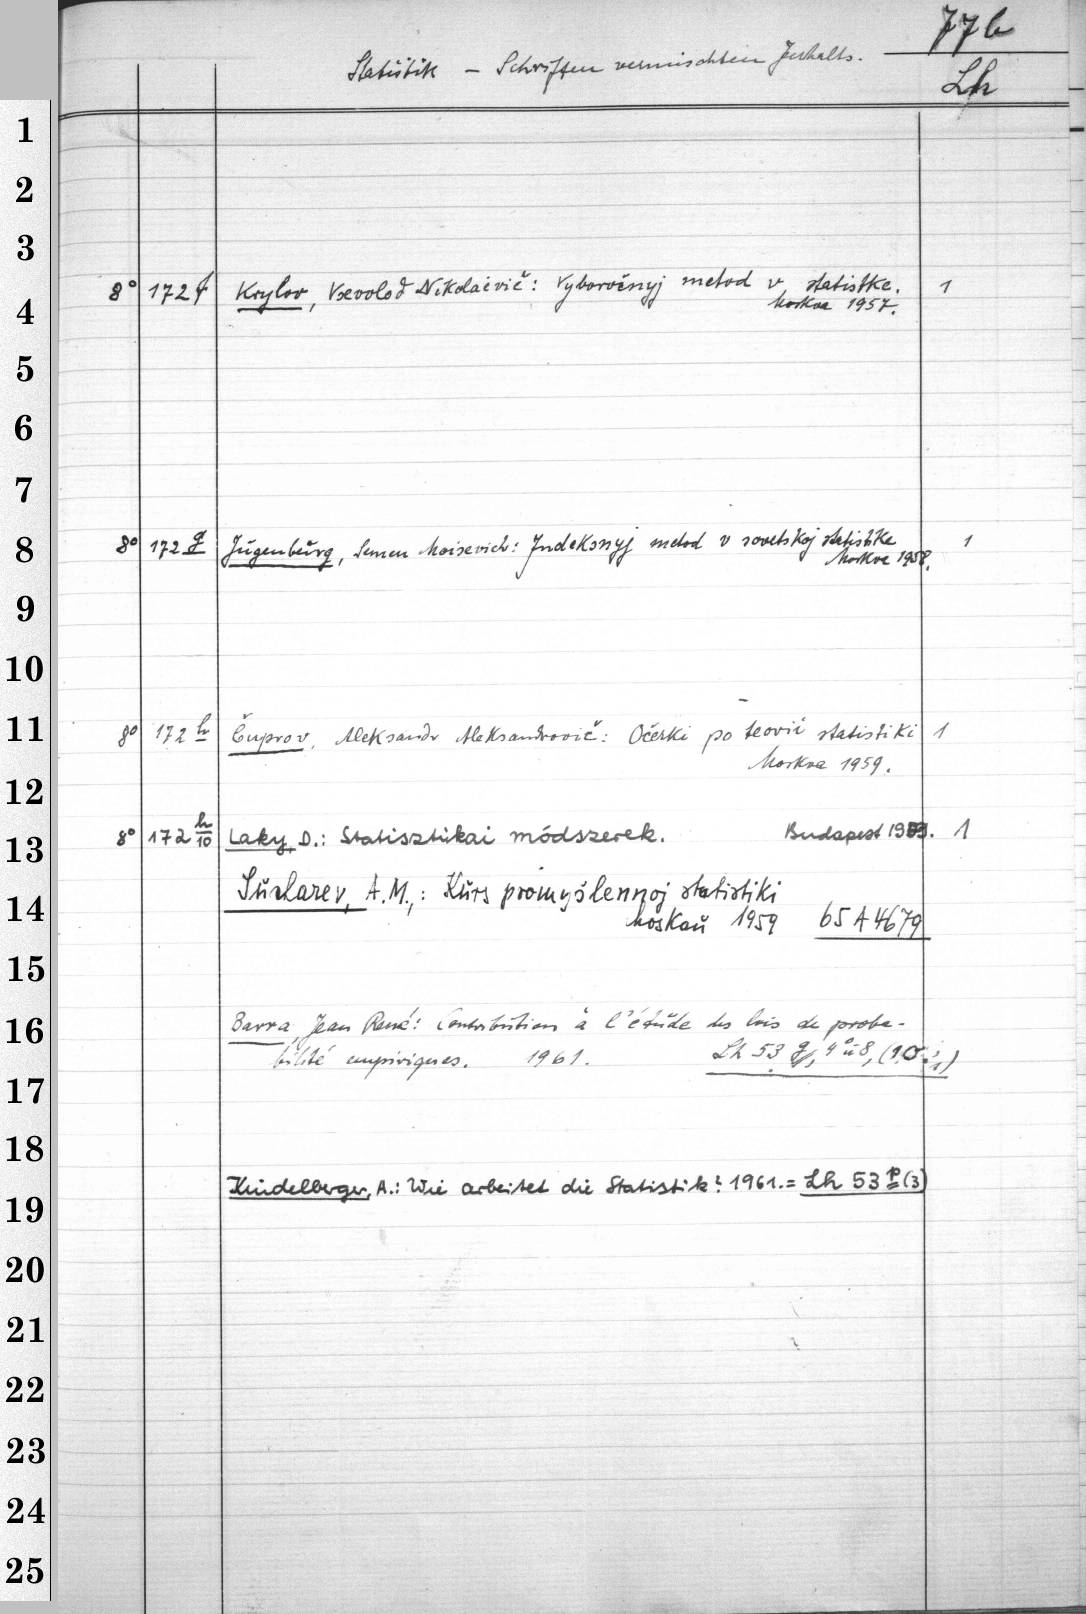 77b
Statistik – Schriften vermischten Inhalts.
Lh
1
2
3
8° 172 f Krylov, Vsevolod Nikolaevič: Vyboročnyj metod v statistke. 1
4
Moskva 1957.
5
6
7
8 8° 172 g Jugenburg, Semen Moisevich: Indeksnyj metod v sovetskoj statistike 1
Moskva 1958.
9
10
11 8° 172 h Čuprov, Aleksandr Aleksandrovič: Očerki po teorii statistiki 1
Moskva 1959.
12
13 8° 172 h/10 Laky, D.: Statisztikai módszerek. Budapest 1953. 1
Suslarev, A.M.,: Kurs promyšlennoj statistiki
14 Moskau 1959 65 A 4679
15
16 Barra, Jean René: Contribution à l'étude des lois de proba-
bilité empiriques. 1961. Lh 53 g, 4° u 8,
17
18
Kindelberger, A.: Wie arbeitet die Statistik? 1961. = Lh 53 p (3)
19
20
21
22
23
24
25